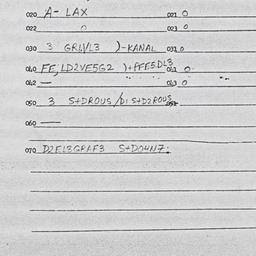 020 A- LAX 021 0
022 0 023 0
030 3 GRL/L3 )-KANAL 031 0
040 FE, LD2VE5G2 )+FFE5.DL3 041 0
042 — 043 0
050 3 S+DROUS/D1 S+D2ROUS
060 —
070 D2EL3GRAF3 S+DO4N7: